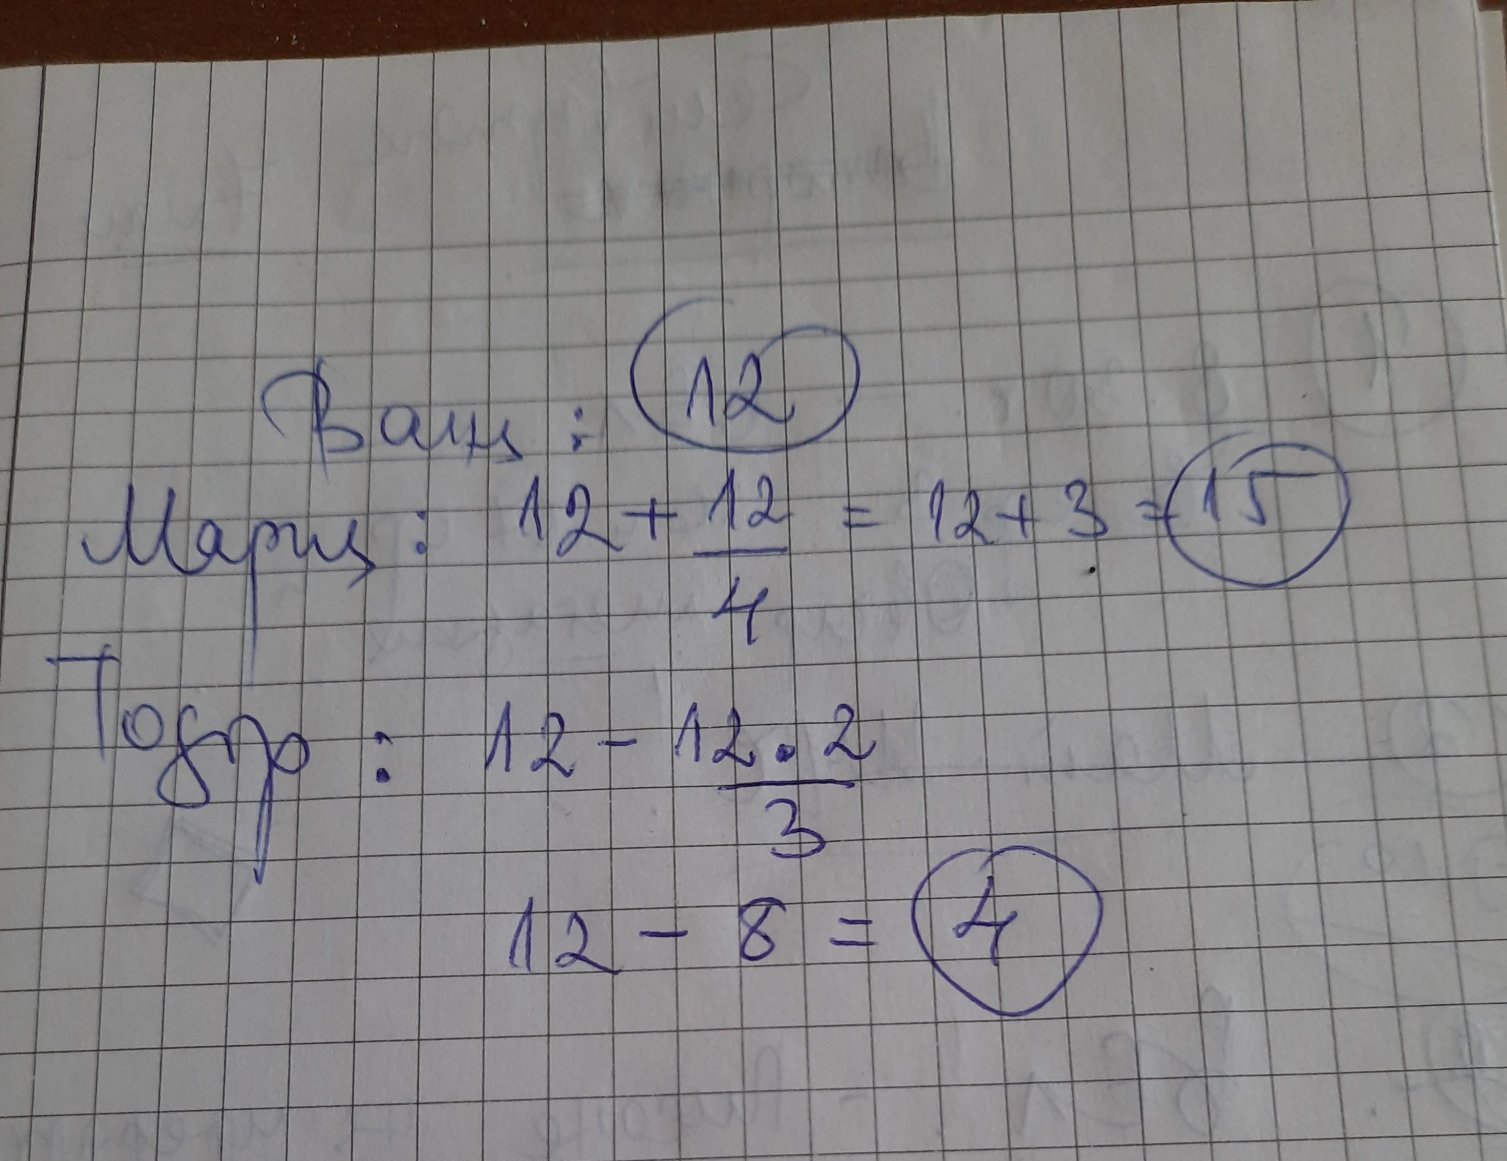 Ваня: 12
Мария: 12 + 12/4 = 12 + 3 = 15
Тодор: 12 - 12 . 2/3
12 - 8 = 4